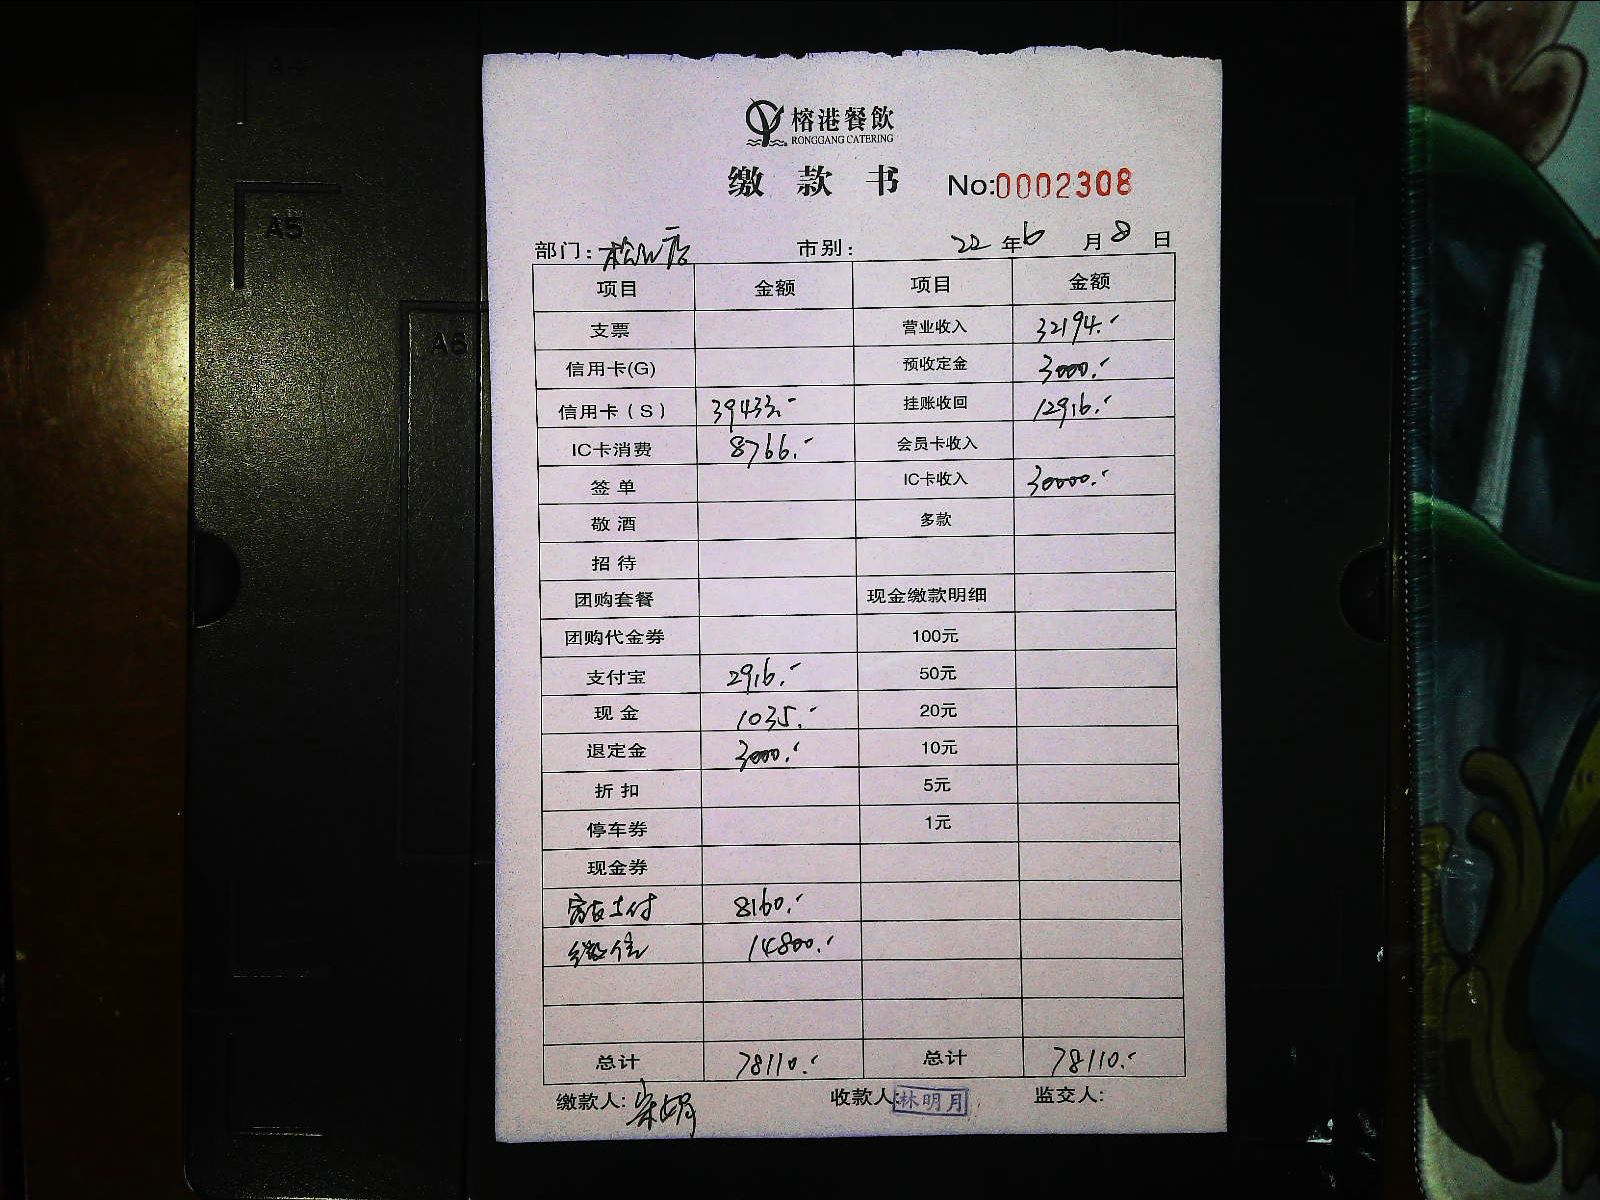 A4
A5
A6
榕港餐飲
RONGGANG CATERING
缴款书 No:0002308
部门: 松山店 市别: 22年6月8日
项目 金额 项目 金额
支票 营业收入 32194.-
信用卡(G) 预收定金 3000.-
信用卡(S) 39433.- 挂账收回 12916.-
IC卡消费 8766.- 会员卡收入
签单 IC卡收入 30000.-
敬酒 多款
招待
团购套餐 现金缴款明细
团购代金券 100元
支付宝 2916.- 50元
现金 1035.- 20元
退定金 3000.- 10元
折扣 5元
停车券 1元
现金券
富友支付 8160.-
微信 14800.-
总计 78110.- 总计 78110.-
缴款人: 收款人: 林明月 监交人: